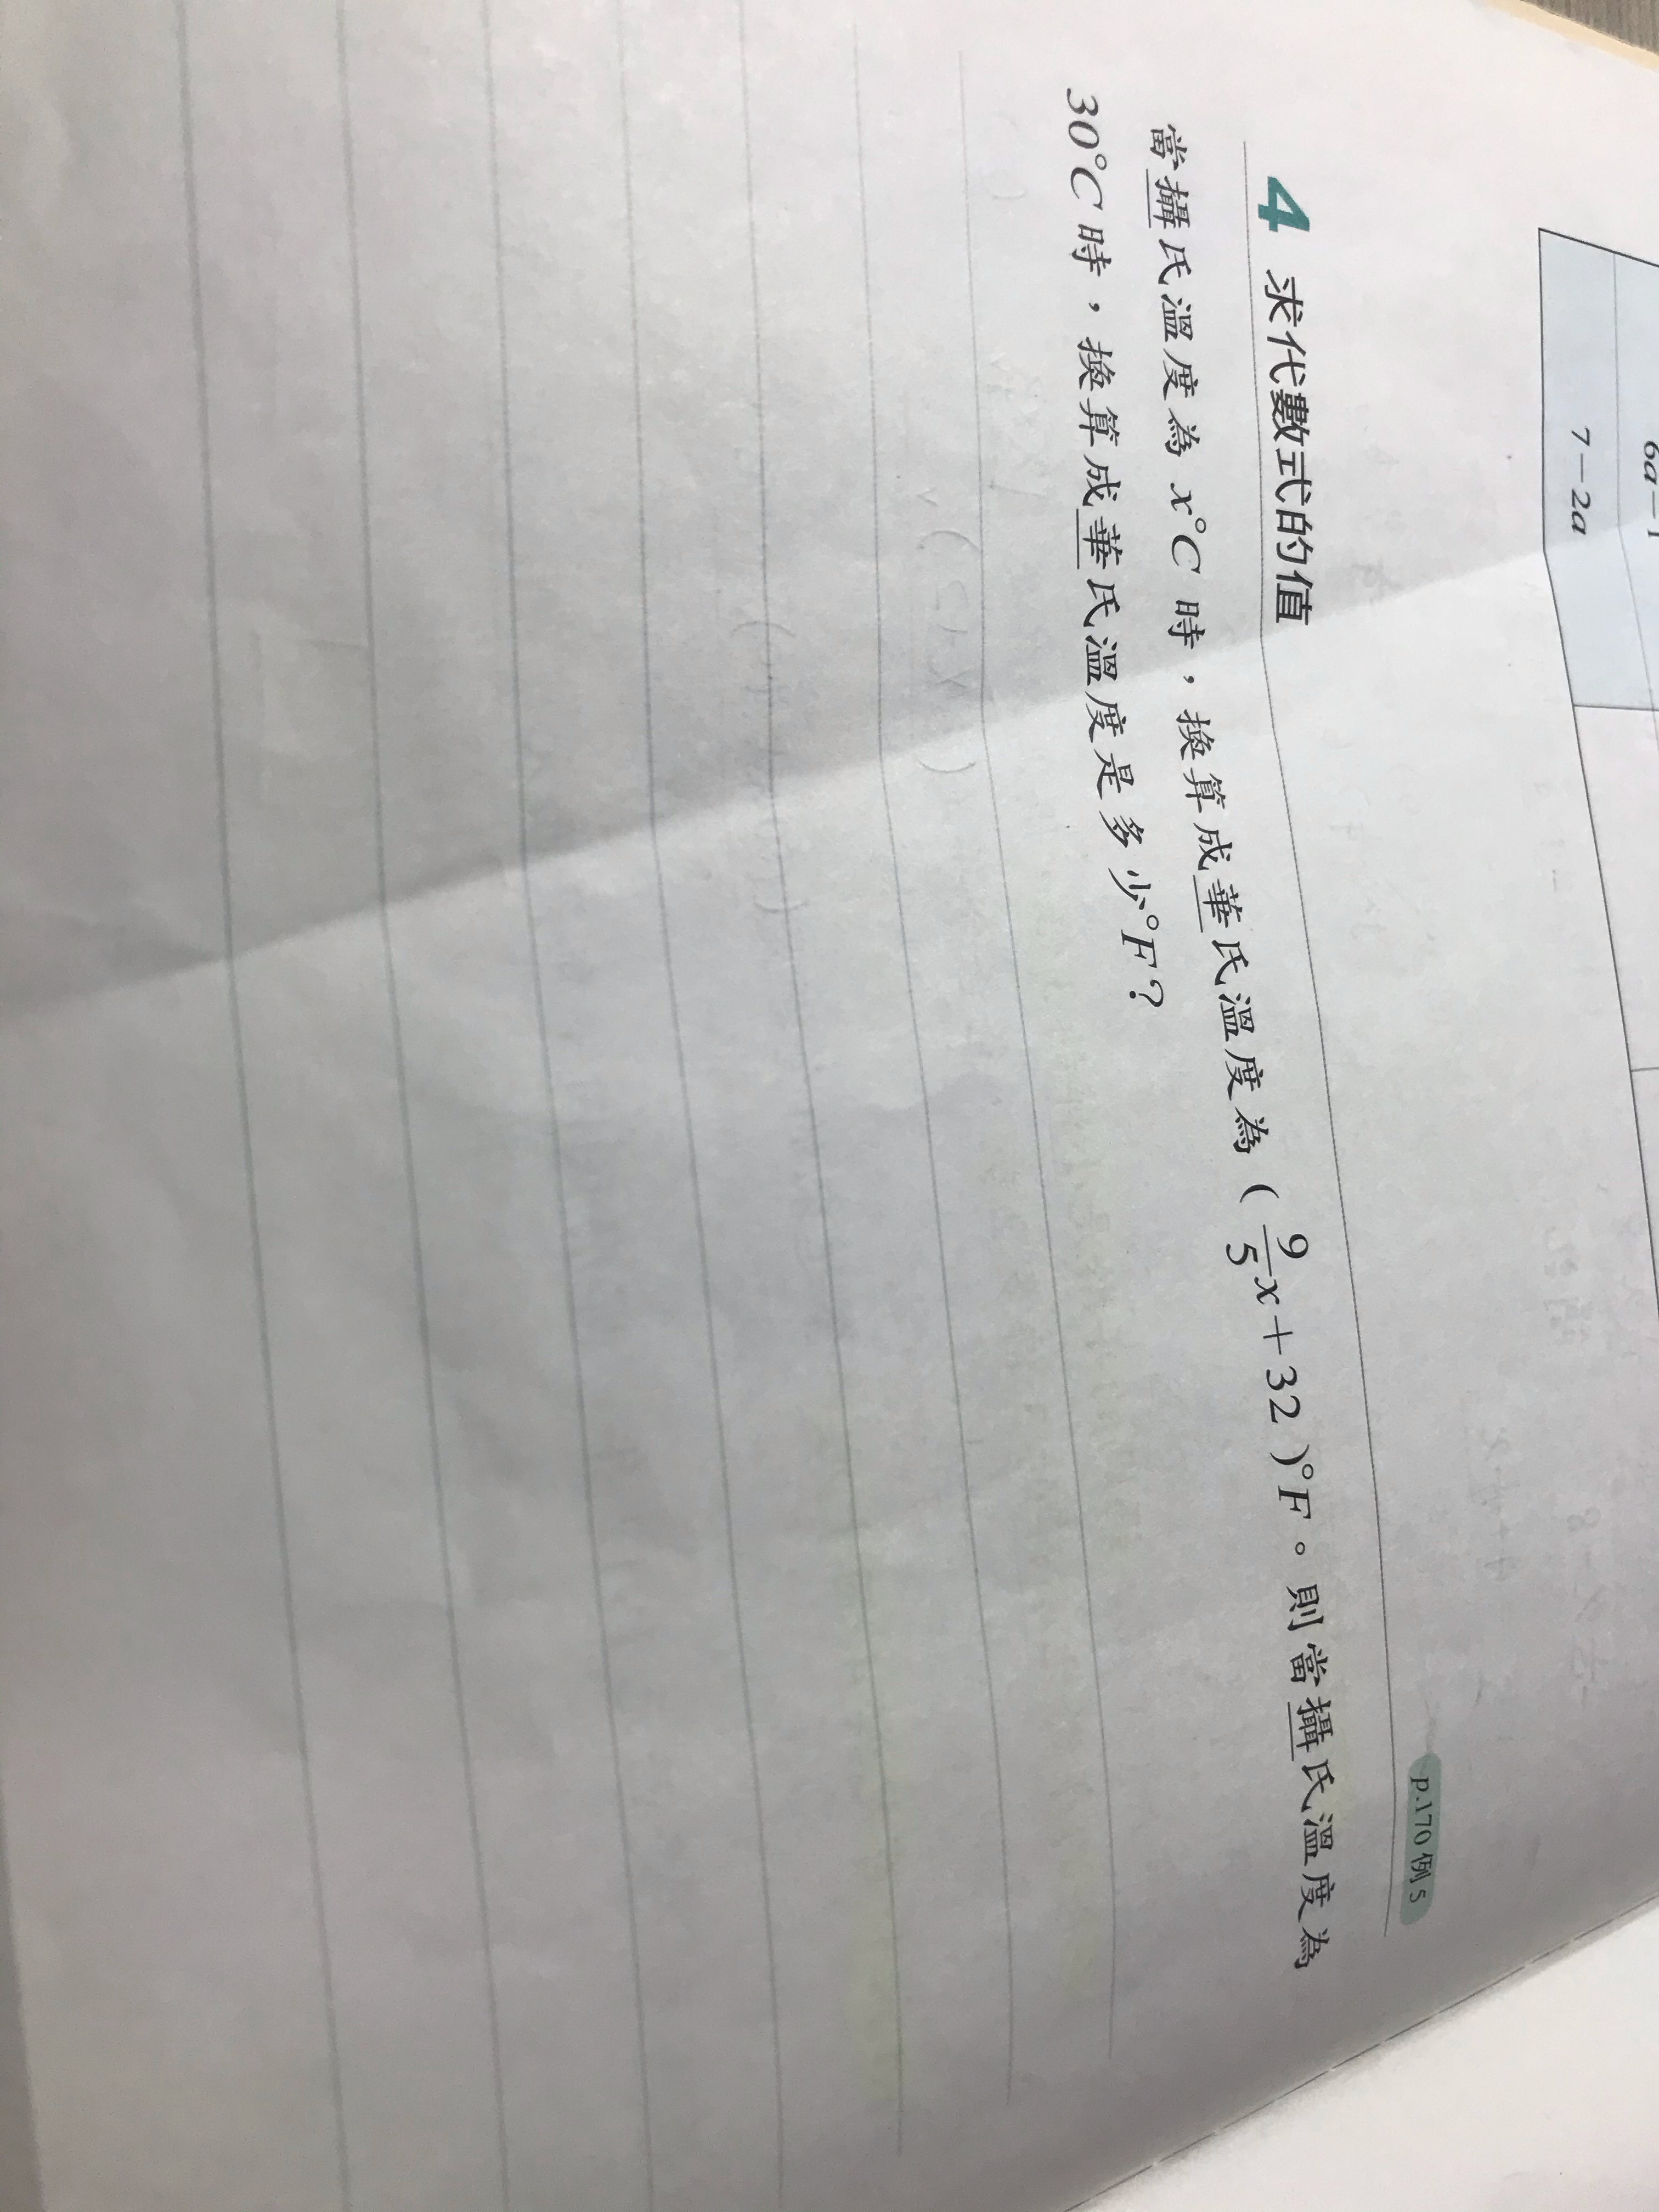 6a－1
7－2a
4 求代數式的值
p.170 例 5
當攝氏溫度為 x°C 時，換算成華氏溫度為 ( 9/5 x＋32 )°F。則當攝氏溫度為
30°C 時，換算成華氏溫度是多少°F？